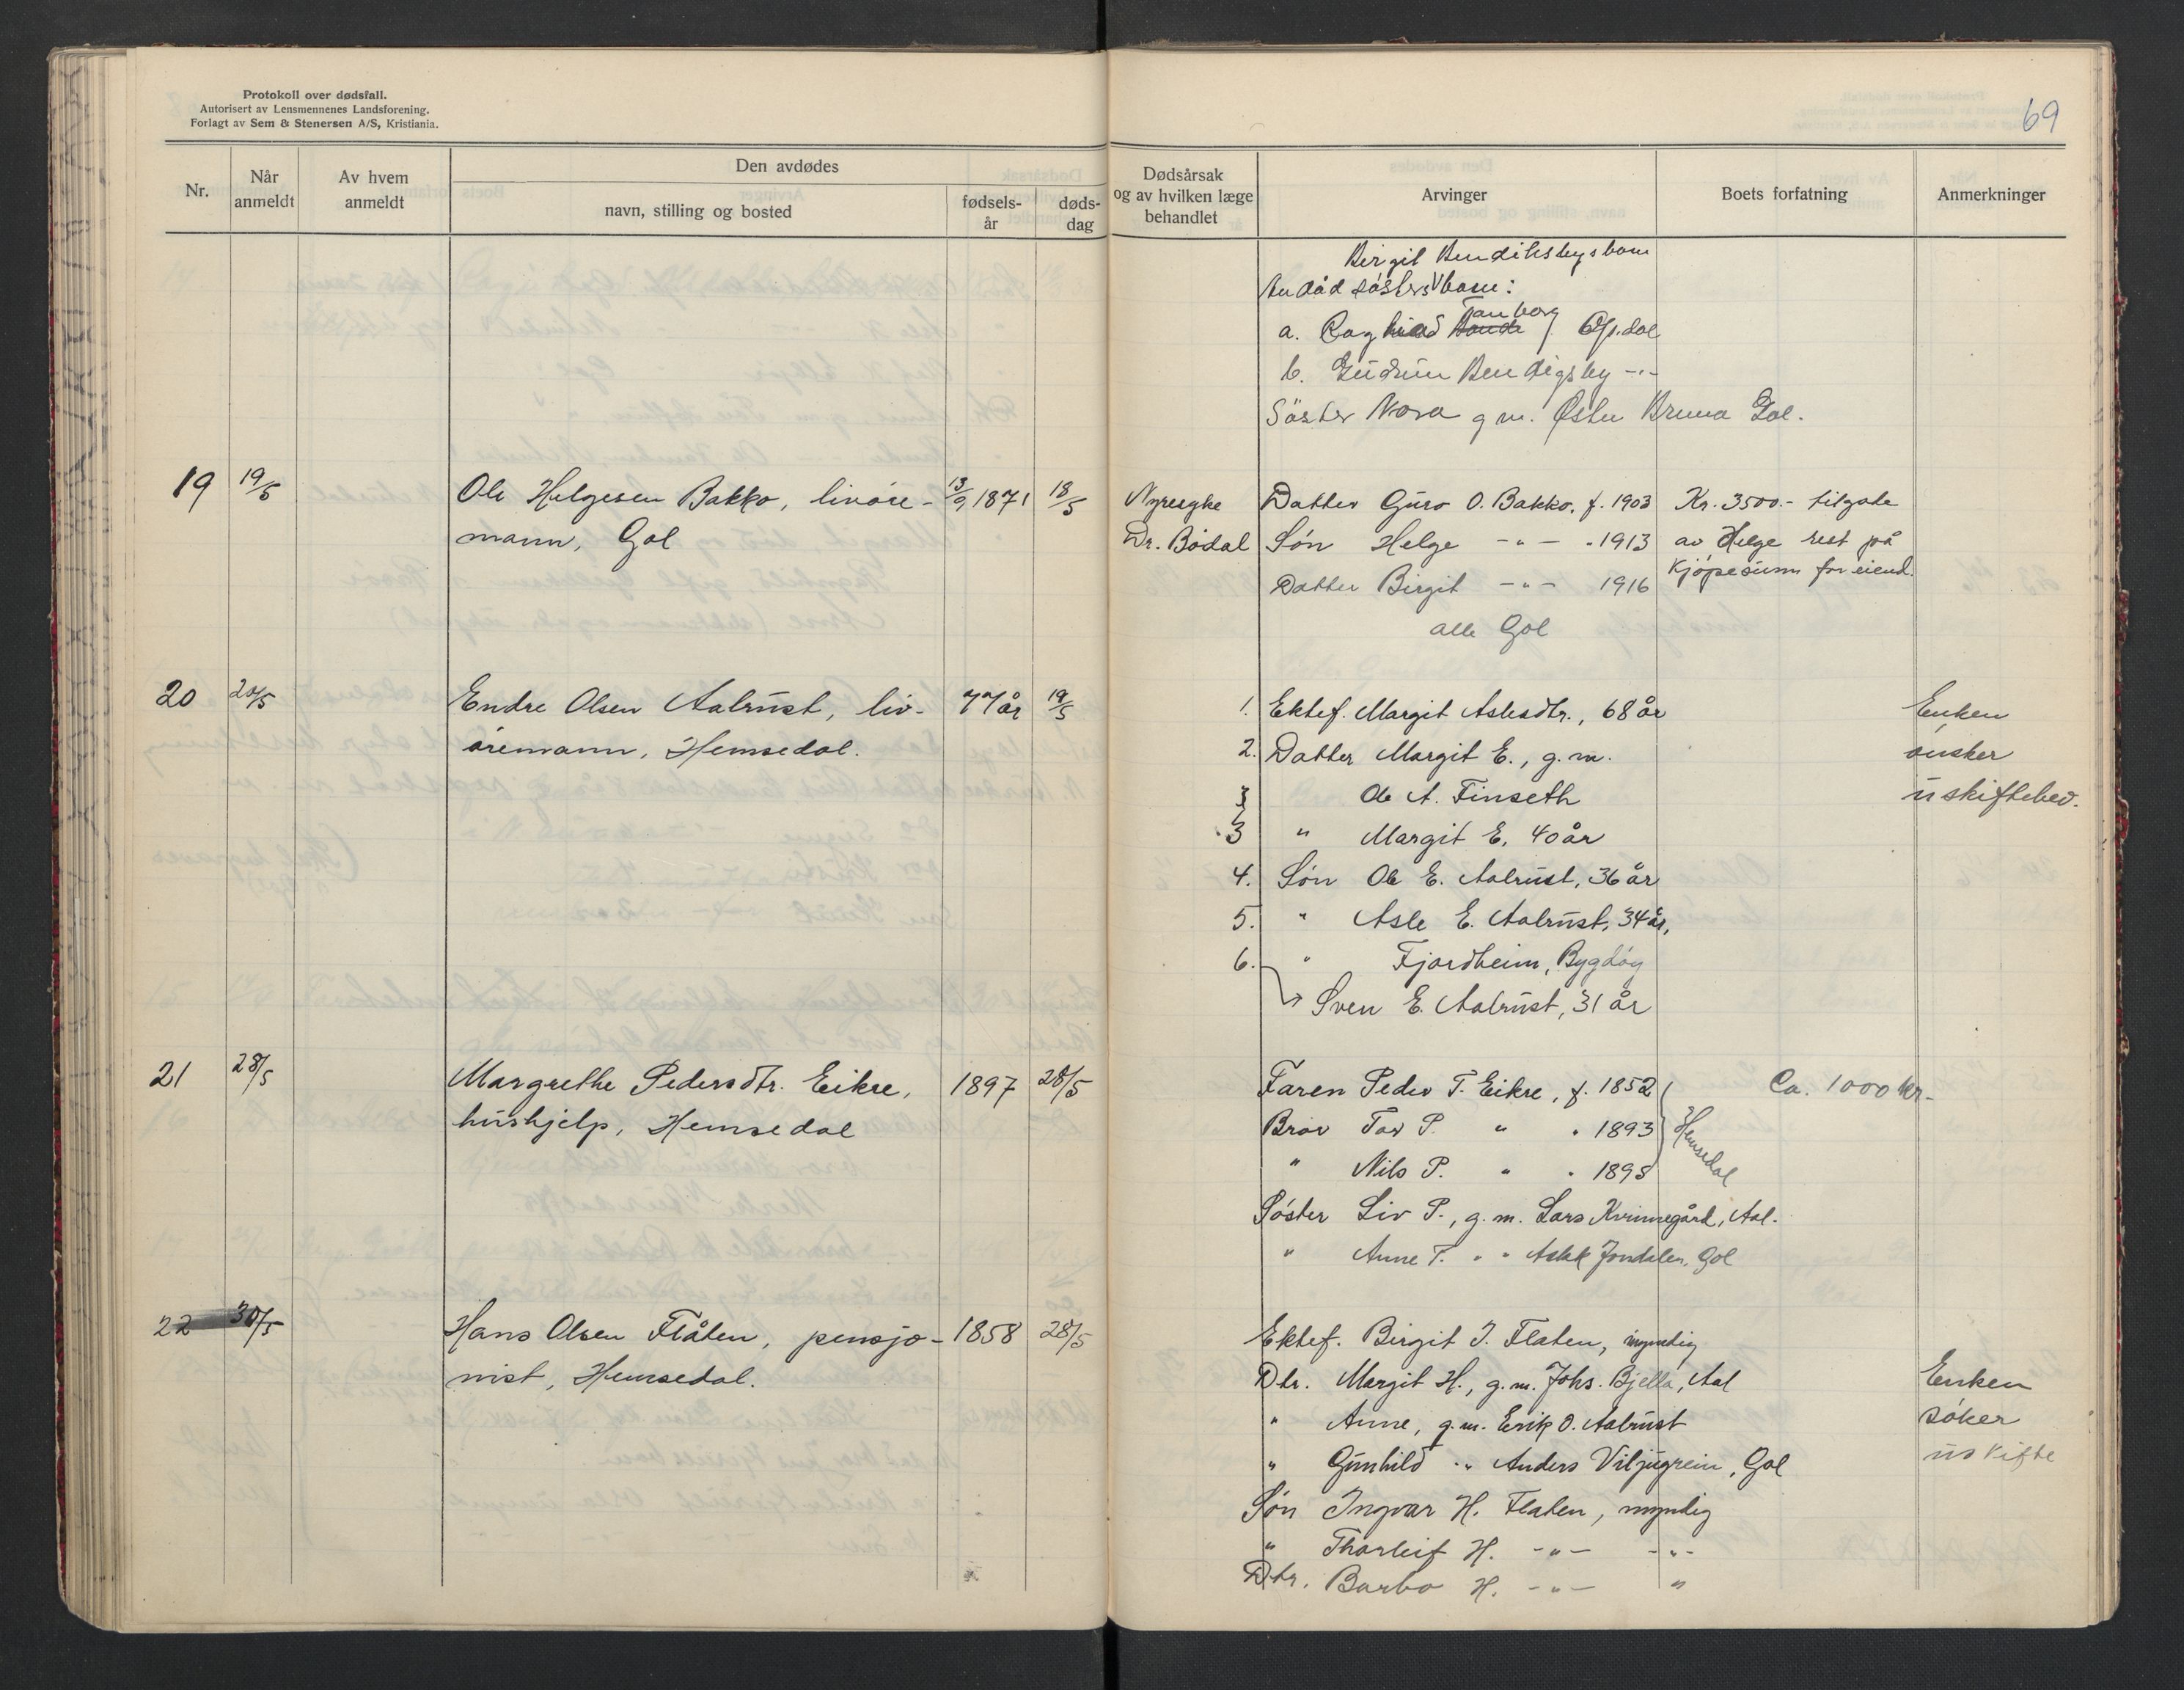 Protokoll over dødsfall.
Autorisert av Lensmennenes Landsforening.
Forlagt av Sem & Stenersen A/S, Kristiania.
69
Nr.
Når anmeldt
Av hvem anmeldt
Den avdødes
navn, stilling og bosted
fødsels-år
døds-dag
Dødsårsak og av hvilken læge behandlet
Arvinger
Boets forfatning
Anmerkninger
Birgit
søsters barn:
a. Ragnhild Opdal
b. Gudrun Bendigsby -"-
Söster Nora g m. Østen Bruna Gol.
19 19/5 Ole Helgesen Bakko, livøre- 13/9 1871 18/5 Nyresyke Datter Guro O. Bakko. f. 1903 Kr. 3500.- tilgode
mann, Gol Dr. Bødal Søn Helge -"- " 1913 av Helge rest på
Datter Birgit -"- 1916 kjøpesum for eiend.
alle Gol
20 20/5 Endre Olsen Aalrust, liv- 77 år 19/5 1. Ektef. Margit Aslesdtr., 68 år Enken
øremann, Hemsedal. 2. Datter Margit E., g. m. ønsker
3 Ole A. Finseth uskiftebev.
3 " Margit E. 40 år
4. Søn Ole E. Aalrust, 36 år
5. " Asle E. Aalrust, 34 år,
6. " Fjordheim, Bygdøy
Sven E. Aalrust, 31 år
21 28/5 Margrethe Pedersdtr. Eikre, 1897 28/5 Faren Peder T. Eikre, f. 1852 Ca. 1000 kr.
hushjelp, Hemsedal Bror Tor P. " " 1893 Hemsedal
" Nils P. " " 1895
Søster Liv P., g. m. Lars Kvinnegård, Aal.
" Anne P. " " Aslak Jondalen, Gol
22 30/5 Hans Olsen Flåten, pensjo- 1858 28/5 Ektef. Birgit J. Flaten, myndig
nist, Hemsedal. Dtr. Margit H., g. m. Johs. Bjella, Aal Enken
" Anne, g. m. Erik O. Aalrust søker
" Gunhild " " Anders Viljugrein, Gol uskifte
Søn Ingvar H. Flaten, myndig
" Thorleif H. -"- -"-
Dtr. Barbo H. -"- "